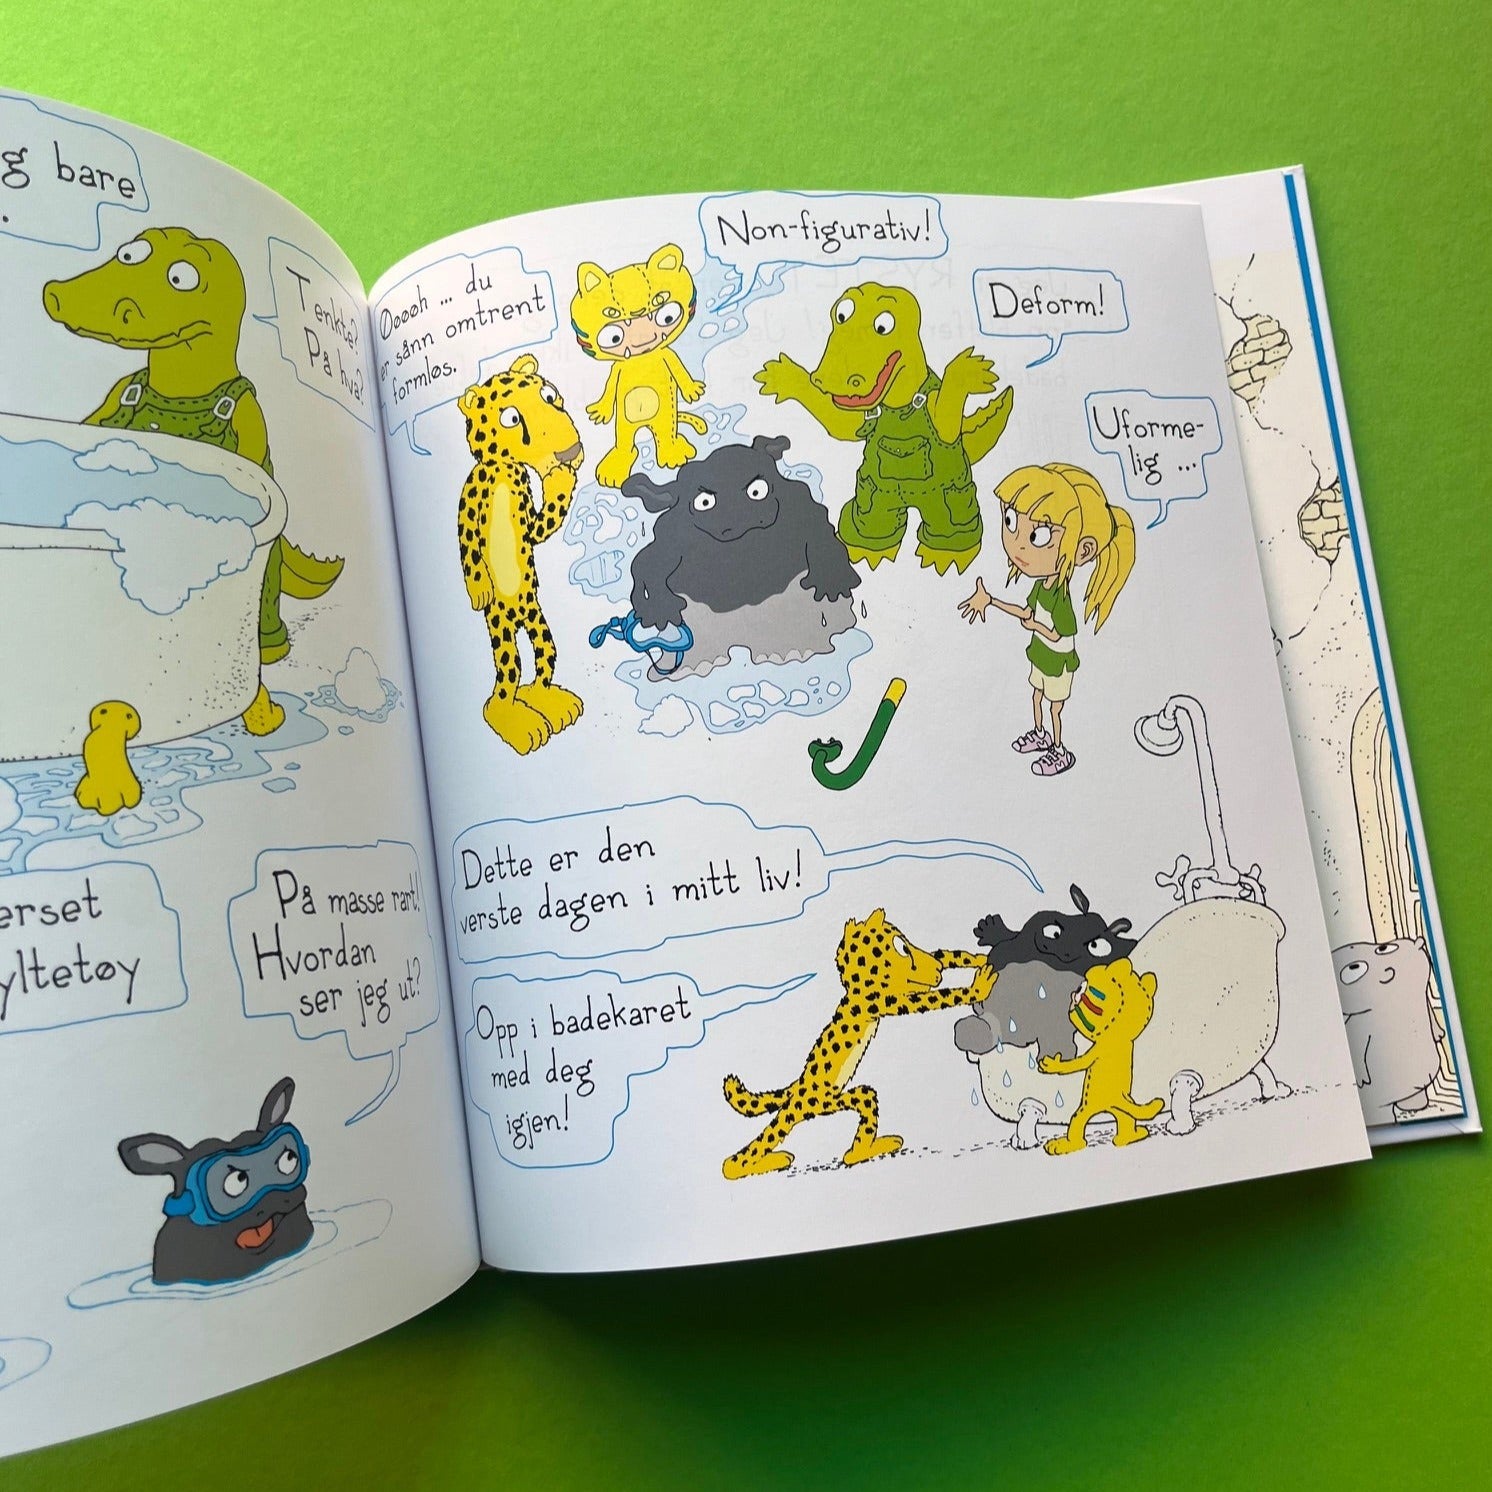 g bare
.
Tenkte?
På hva?
erset
yltetøy
På masse rart!
Hvordan
ser jeg ut?
Øøøøh ... du
er sånn omtrent
formløs.
Non-figurativ!
Deform!
Uforme-
lig ...
Dette er den
verste dagen i mitt liv!
Opp i badekaret
med deg
igjen!